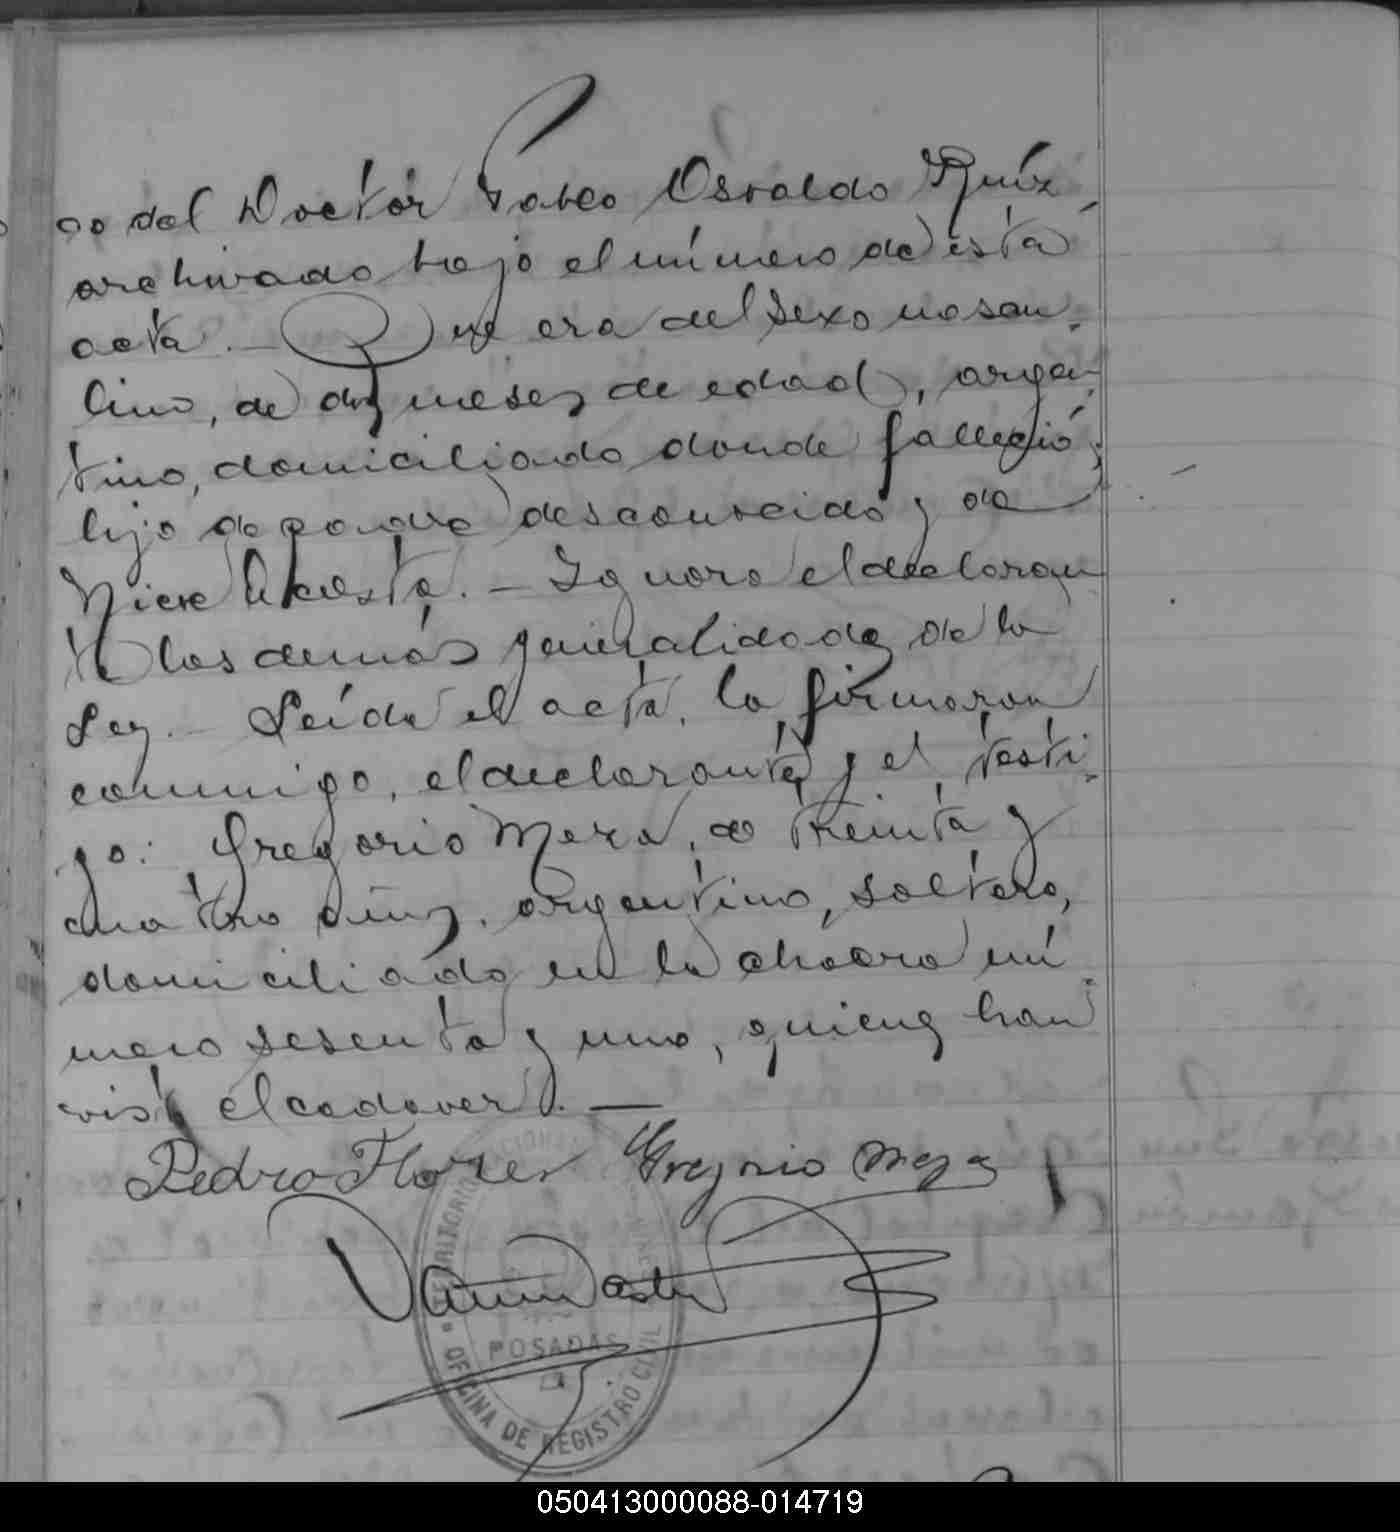 do del Doctor Pablo Osvaldo Ruíz,
archivado bajo el número de esta
acta.— Que era del sexo mascu-
lino, de dos meses de edad, argen-
tino, domiciliado donde falleció;
hijo de padre desconocido y de
Acosta.— Ignora el declaran
te las demás generalidades de la
Ley.— Leída el acta, la firmaron
conmigo, el declarante y el testi-
go: Gregorio Meza, de treinta y
cuatro años, argentino, soltero,
domiciliado en la chacra nú-
mero sesenta y uno, quienes han
visto el cadaver.—
Pedro Flores Gregorio Meza
TERRITORIO NACIONAL
POSADAS
OFICINA DE REGISTRO CIVIL
050413000088-014719